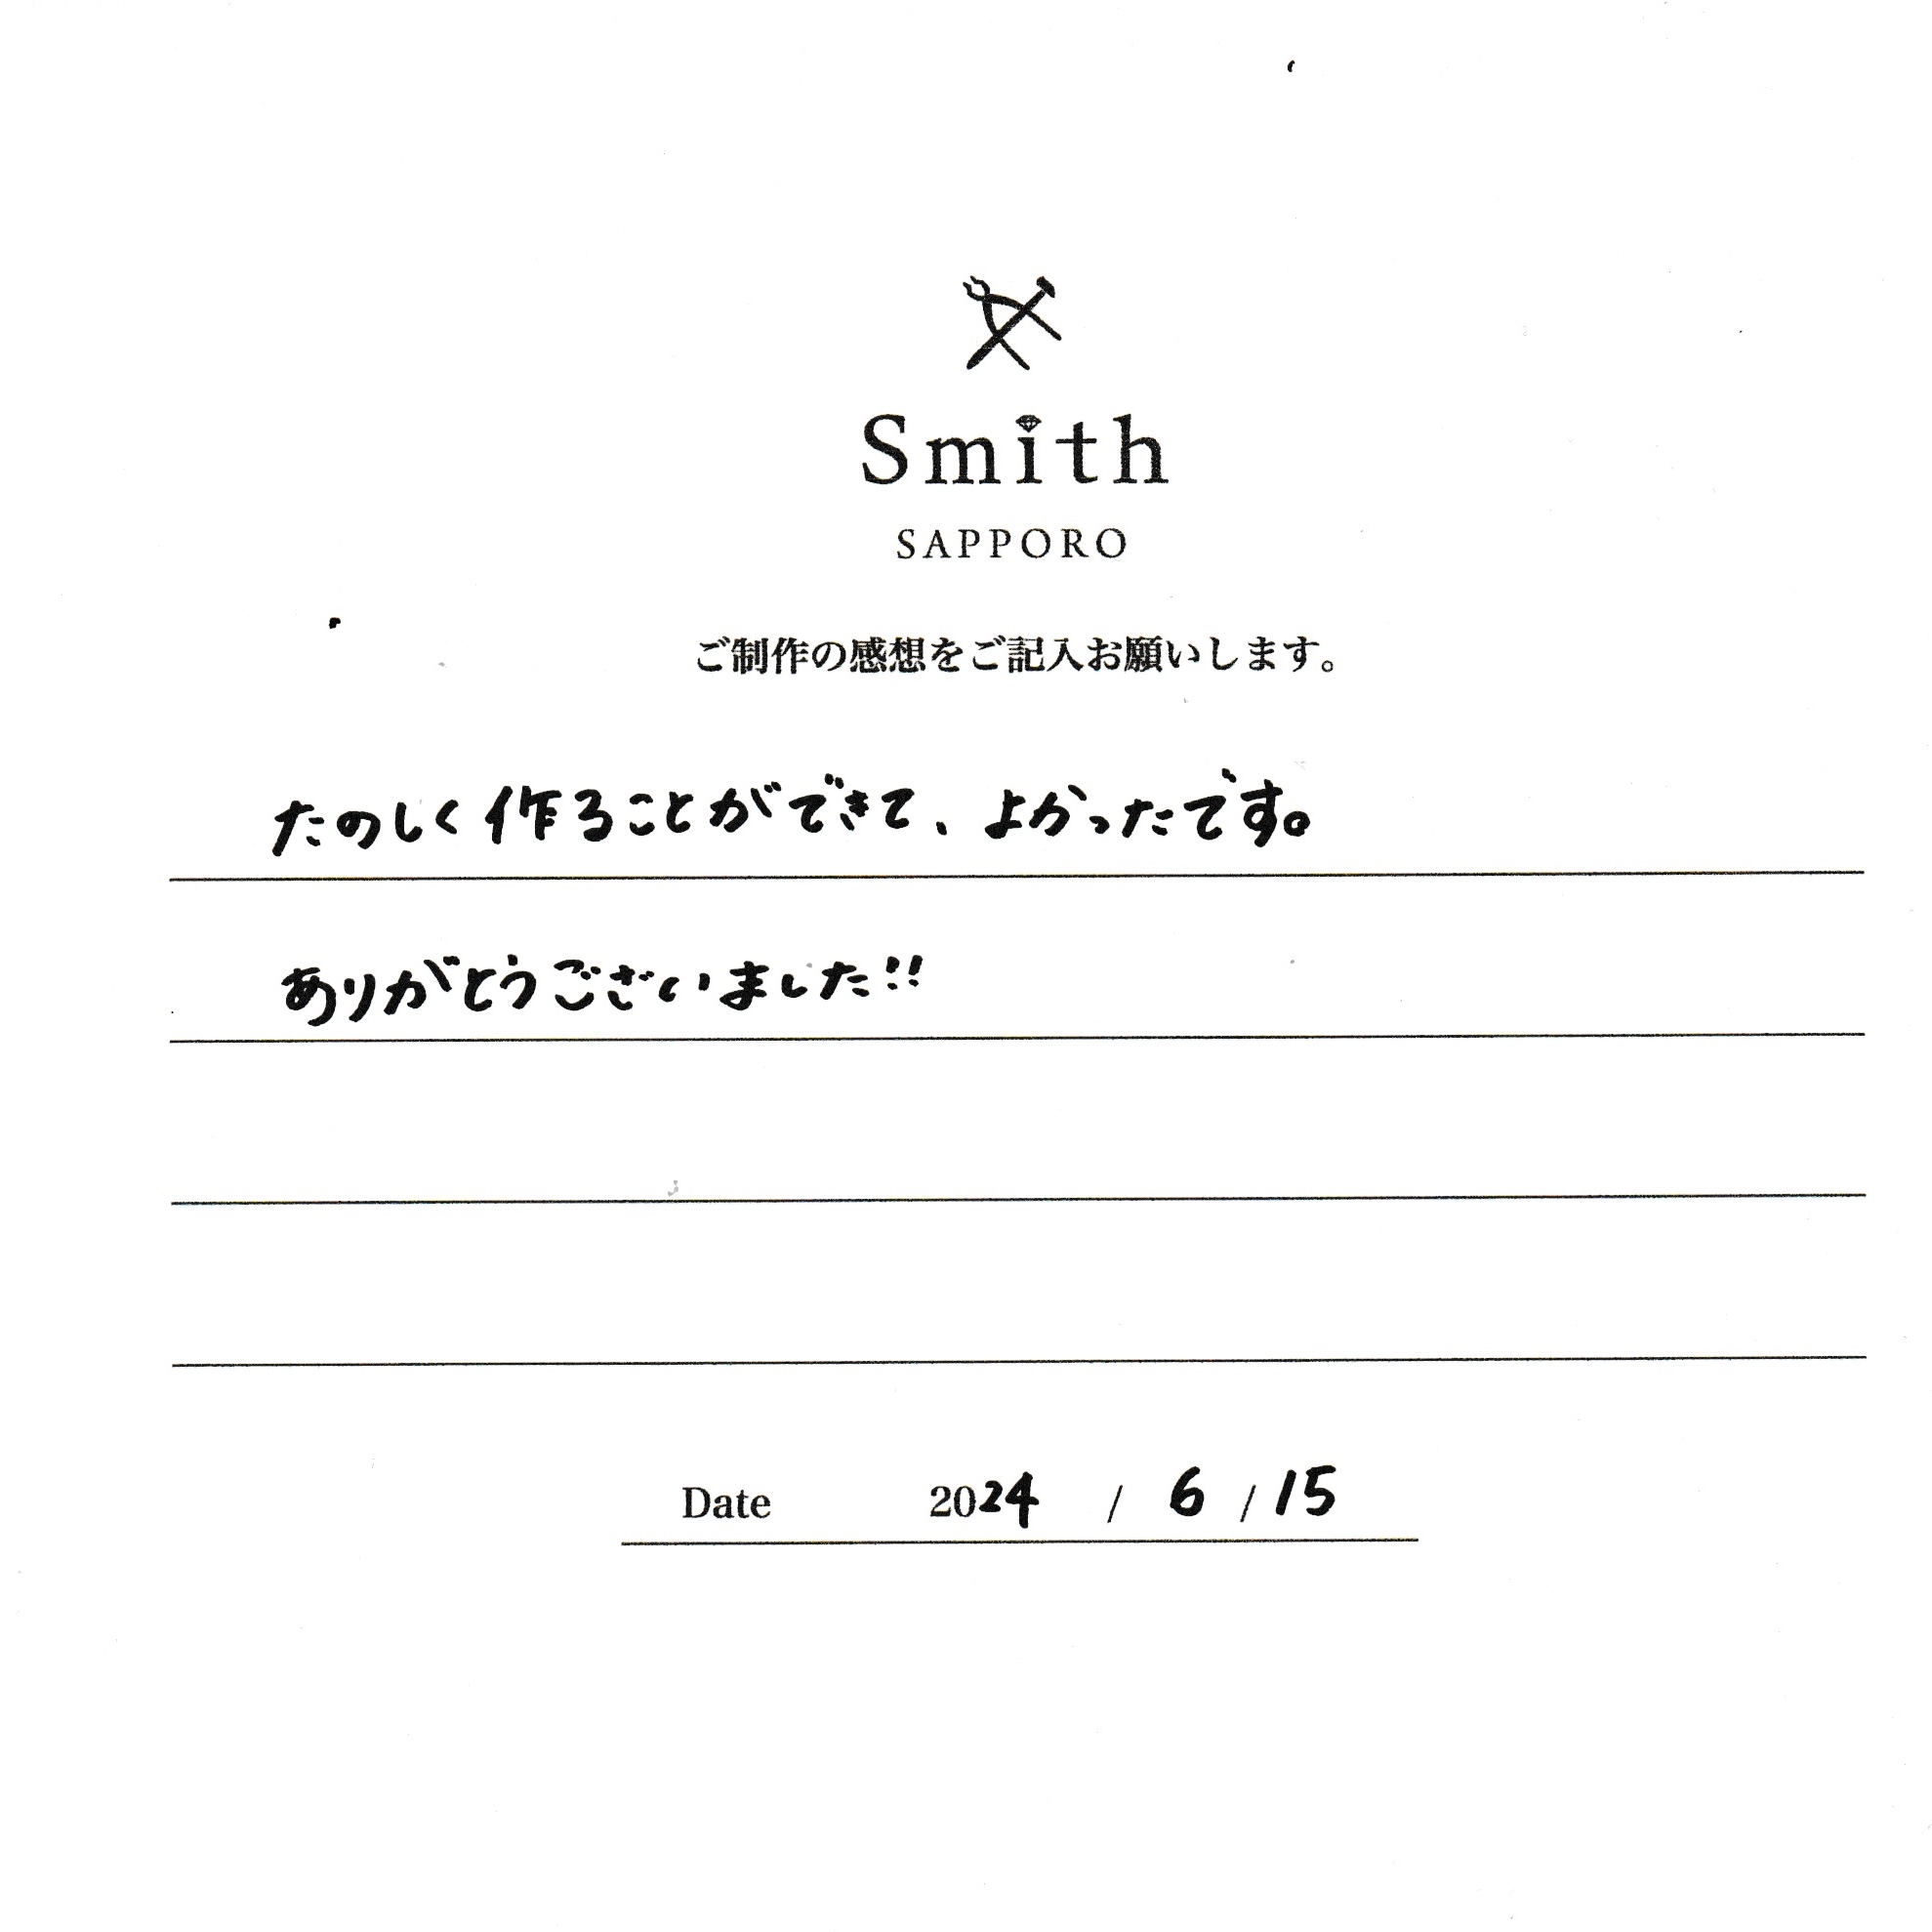 Smith
SAPPORO
ご制作の感想をご記入お願いします。
たのしく作ることができて、よかったです。
ありがとうございました!!
Date 2024 / 6 / 15